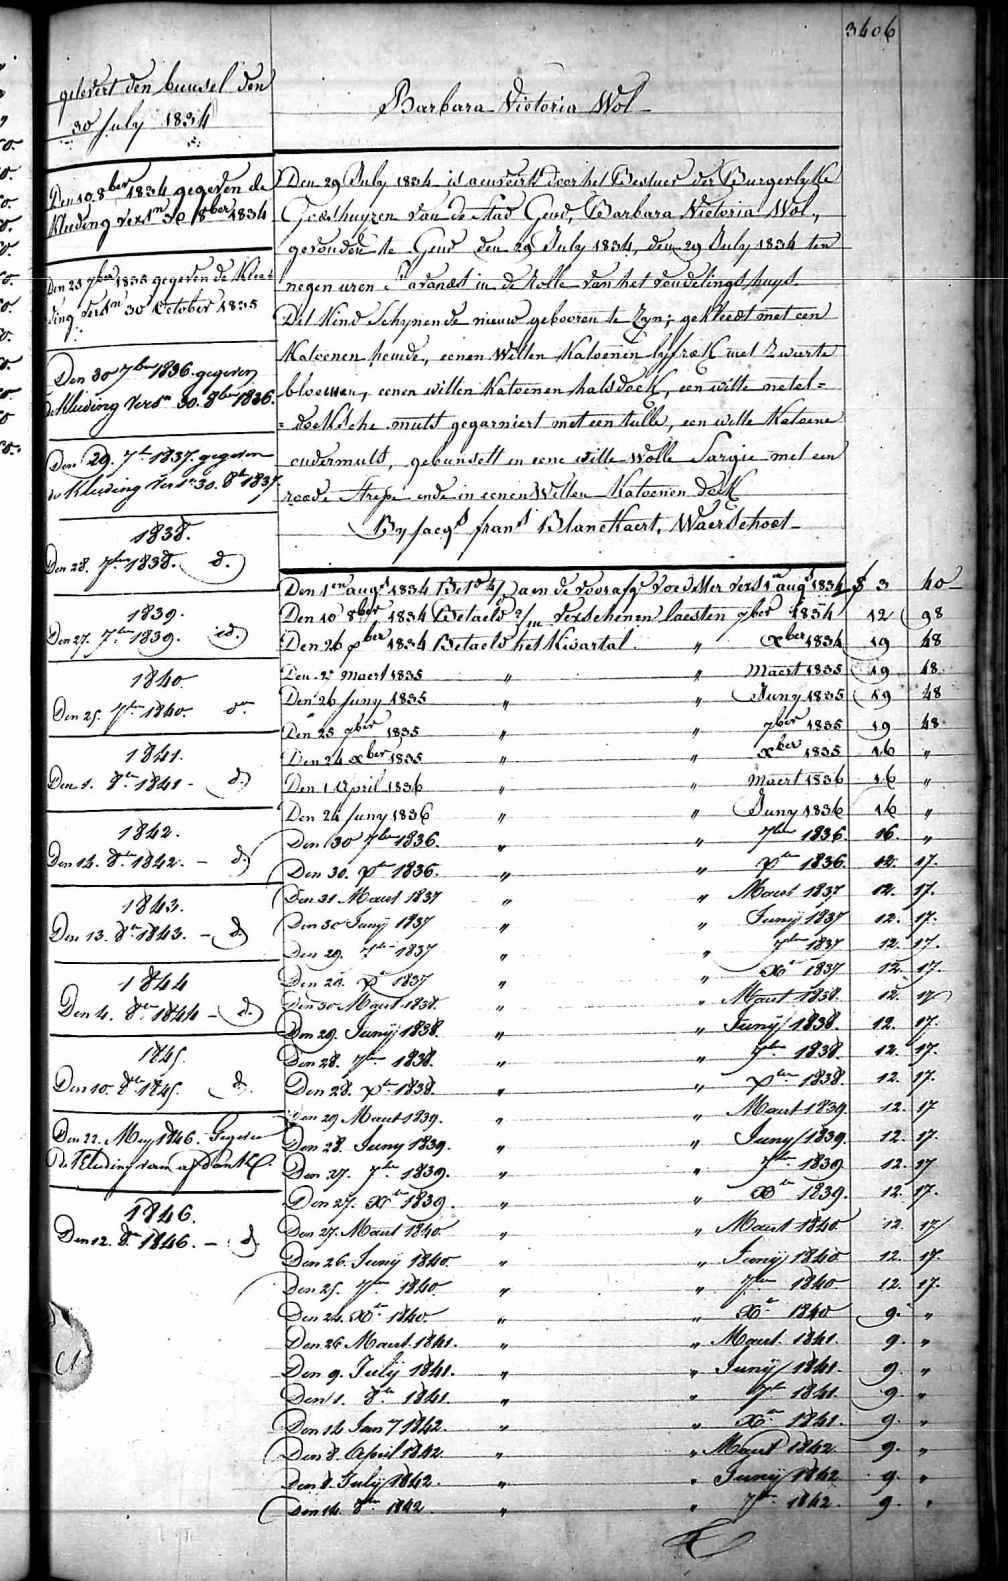 3406
gelevert den bunsel den
30 July 1834
Den 10 8ber 1834 gegeven de
Kleeding vers1n 30 8ber 1834
Den 25 7ber 1835 gegeven de Klee=
ding vers1n 30 October 1835
Den 30 7ber 1836 gegeven
de Kleeding vers1n 30. 8ber 1836.
Den 29. 7br 1837. gegeven
de Kleeding vers1n 30. 8br 1837.
1838.
Den 28. 7ber 1838. d.
1839.
Den 27. 7br 1839. id.
1840.
Den 25. 7br 1840. do
1841.
Den 1. 8br 1841 - d.
1842.
Den 14. 8br 1842. - d.
1843.
Den 13. 8br 1843. - d.
1844
Den 4. 8ber 1844 - d.
1845.
Den 10. 8br 1845. d.
Den 22. Mey 1846. Gegeven
de Kleeding van
1846.
Den 12. 8br 1846. - d.
Barbara Victoria Wol
Den 29 July 1834 is aenveird door het Bestuer der Burgerlyke
Godshuyzen van de stad Gend, Barbara Victoria Wol,
gevonden te Gend den 29 July 1834, den 29 July 1834 ten
negen uren s'n avonds in de Rolle van het vondelingshuys.
Dit Kind Schynende nieuw gebooren te Zyn; gekleedt met een
Katoenen hemde, eenen witten Katoenen lyfrok met Zwarte
bloemen, eenen witten Katoenen halsdoek, een witte netel=
=doeksche muts gegarniert met een tulle, een witte Katoene
ondermuts, gebunselt in eene witte Wolle Sargie met een
roode strepe ende in eenen Witten Katoenen doek
By Jacqs frans Blanckaert, Waerschoot
Den 1en augt 1834 aen de voorafge voedster vers 1en augt 1834 f 3 40
Den 10 8ber 1834 Betaeld verschenen laesten 7ber 1834 12 98
Den 26 xber 1834 Betaeld het Kwartal. " xber 1834 19 48
Den 2 Maert 1835 " " Maert 1835 19 48
Den 26 Juny 1835 " " Juny 1835 19 48
Den 25 7ber 1835 " " 7ber 1835 19 48
Den 24 xber 1835 " " xber 1835 16 "
Den 1 April 1836 " " Maert 1836 16 "
Den 24 Juny 1836 " " Juny 1836 16 "
Den 30 7ber 1836. " " 7ber 1836. 16. "
Den 30. xbr 1836. " " xbr 1836. 12. 17.
Den 31 Maert 1837 " " Maert 1837 12. 17.
Den 30 Junij 1837 " " Junij 1837 12. 17.
Den 29. 7br 1837 " " 7ber 1837 12. 17.
Den 28. xbr 1837 " " xbr 1837 12. 17.
Den 30 Maert 1838. " " Maert 1838. 12. 17
Den 29. Junij 1838. " " Junij 1838. 12. 17.
Den 28. 7br 1838. " " 7br 1838. 12. 17.
Den 28. xbr 1838. " " xber 1838. 12. 17.
Den 29 Maert 1839. " " Maert 1839. 12. 17
Den 28. Juny 1839. " " Juny 1839. 12. 17.
Den 27. 7br 1839. " " 7br 1839 12. 17
Den 27. xbr 1839. " " xbr 1839. 12. 17.
Den 27. Maert 1840. " " Maert 1840 12. 17
Den 26. Junij 1840. " " Junij 1840 12. 17.
Den 25. 7br 1840. " " 7ber 1840 12. 17.
Den 24. xbr 1840. " " xbr 1840 9. "
Den 26 Maert 1841. " " Maert 1841. 9. "
Den 9. Julij 1841. " " Junij 1841. 9. "
Den 1. 8br 1841. " " 7br 1841 9 "
Den 14 Jan 1842. " " xbr 1841. 9. "
Den 8. April 1842 " " Maert 1842 9. "
Den 8. Julij 1842. " " Junij 1842 9. "
Den 14. 8br 1842 " " 7br 1842 9. "